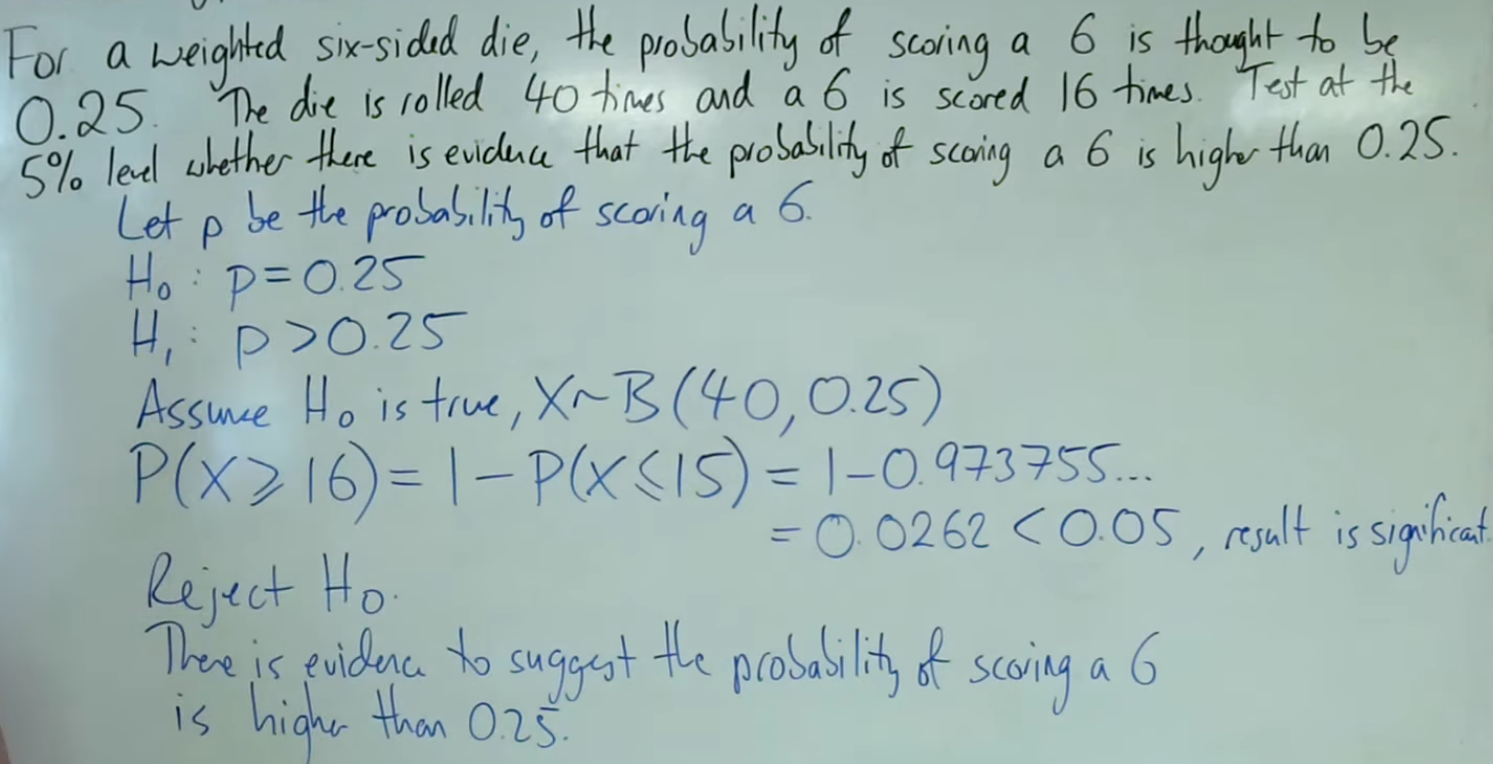 For a weighted six-sided die, the probability of scoring a 6 is thought to be
0.25. The die is rolled 40 times and a 6 is scored 16 times. Test at the
5% level whether there is evidence that the probability of scoring a 6 is higher than 0.25.
Let p be the probability of scoring a 6.
H₀ : p=0.25
H₁ : p>0.25
Assume H₀ is true, X~B(40,0.25)
P(X⩾16)=1-P(X⩽15)=1-0.973755...
=0.0262<0.05, result is significant.
Reject H₀.
There is evidence to suggest the probability of scoring a 6
is higher than 0.25.